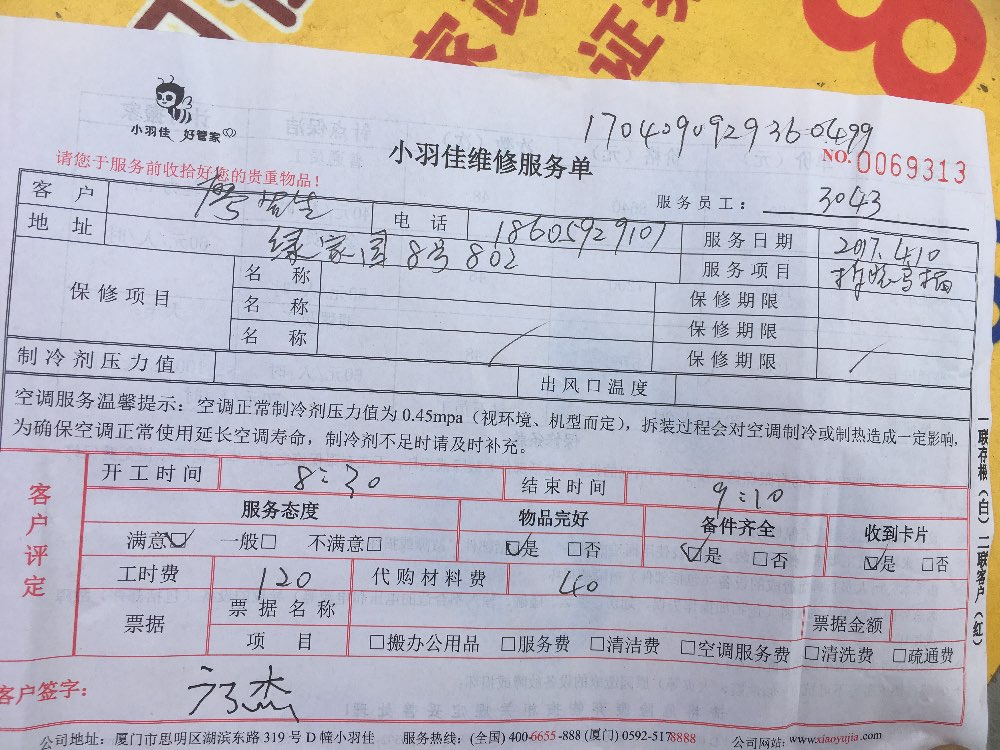 家政
证券
8
小羽佳 好管家
17040909293600499
小羽佳维修服务单
NO. 0069313
请您于服务前收拾好您的贵重物品!
服务员工: 3043
客户 电话 18605929107 服务日期 2017.4.10
地址 绿家园8号802 服务项目
保修项目 名称 保修期限
名称 保修期限
名称 保修期限
制冷剂压力值 出风口温度
空调服务温馨提示:空调正常制冷剂压力值为 0.45mpa(视环境、机型而定),拆装过程会对空调制冷或制热造成一定影响,
为确保空调正常使用延长空调寿命,制冷剂不足时请及时补充。
客户评定
开工时间 8:30 结束时间 9:10
服务态度 物品完好 备件齐全 收到卡片
满意☑ 一般□ 不满意□ ☑是 □否 ☑是 □否 ☑是 □否
工时费 120 代购材料费 40
票据 票据名称 票据金额
项目 □搬办公用品 □服务费 □清洁费 □空调服务费 □清洗费 □疏通费
一联存根(白)二联客户(红)
客户签字:
公司地址:厦门市思明区湖滨东路 319 号 D 幢小羽佳 服务热线:(全国) 400-6655-888 (厦门) 0592-5178888 公司网站:www.xiaoyujia.com